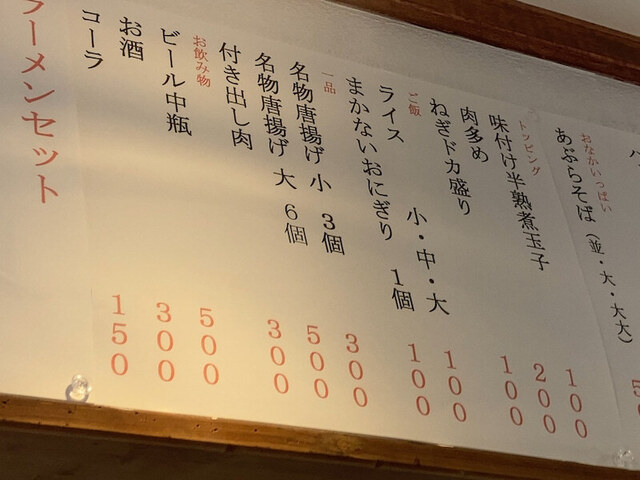 おなかいっぱい
あぶらそば（並・大・大大）
トッピング
味付け半熟煮玉子 100
肉多め 200
ねぎドカ盛り 100
ご飯
ライス 小・中・大 100
まかないおにぎり 1個 100
一品
名物唐揚げ 小 3個 300
名物唐揚げ 大 6個 500
付き出し肉 300
お飲み物
ビール中瓶 500
お酒 300
コーラ 150
ラーメンセット